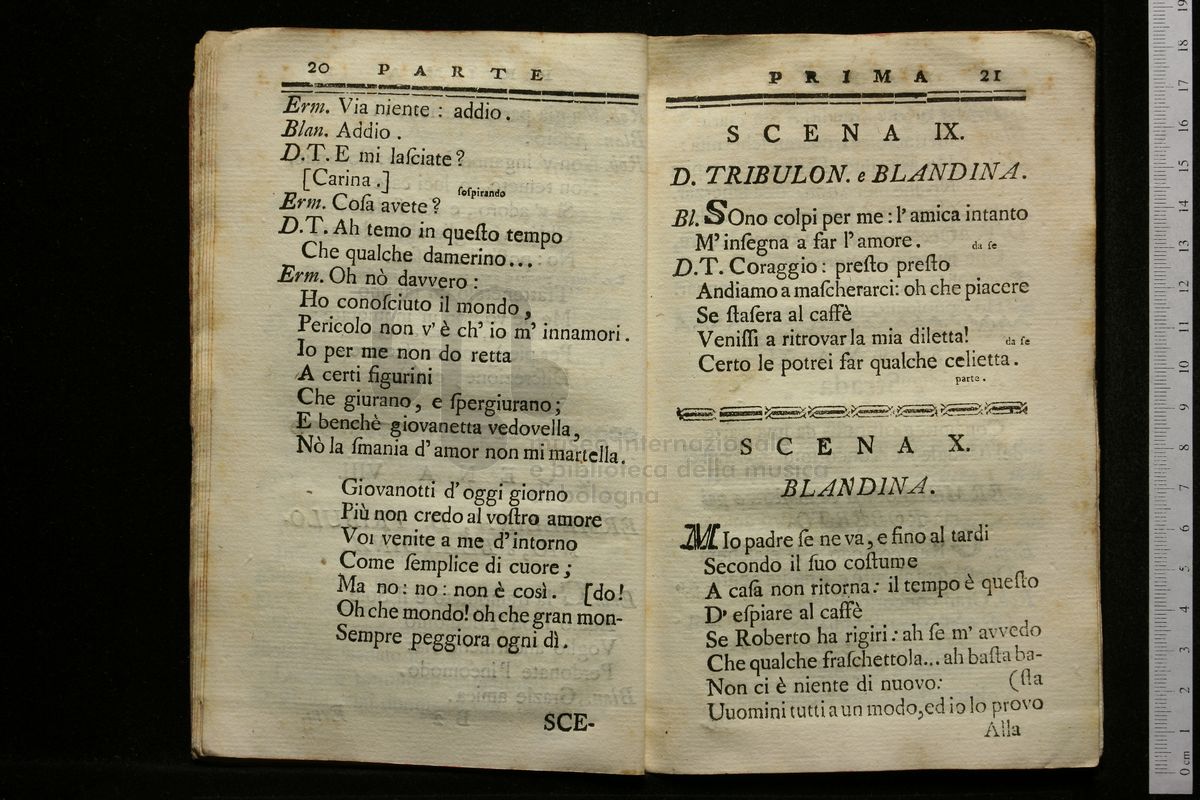 20 PARTE
Erm. Via niente : addio.
Blan. Addio.
D.T. E mi laſciate?
[Carina.]
ſoſpirando
Erm. Coſa avete?
D.T. Ah temo in queſto tempo
Che qualche damerino...
Erm. Oh nò davvero :
Ho conoſciuto il mondo,
Pericolo non v' è ch' io m' innamori.
Io per me non do retta
A certi figurini
Che giurano, e ſpergiurano;
E benchè giovanetta vedovella,
Nò la ſmania d' amor non mi martella.
Giovanotti d' oggi giorno
Più non credo al voſtro amore
Voi venite a me d' intorno
Come ſemplice di cuore;
Ma no : no : non è così. [do!
Oh che mondo! oh che gran mon-
Sempre peggiora ogni dì.
SCE-
PRIMA 21
SCENA IX.
D. TRIBULON. e BLANDINA.
Bl. SOno colpi per me : l' amica intanto
M' inſegna a far l' amore. da ſe
D.T. Coraggio : preſto preſto
Andiamo a maſcherarci: oh che piacere
Se ſtaſera al caffè
Veniſſi a ritrovar la mia diletta! da ſe
Certo le potrei far qualche celietta.
parte.
SCENA X.
BLANDINA.
MIo padre ſe ne va, e fino al tardi
Secondo il ſuo coſtume
A caſa non ritorna: il tempo è queſto
D' eſpiare al caffè
Se Roberto ha rigiri: ah ſe m' avvedo
Che qualche fraſchettola... ah baſta ba-
Non ci è niente di nuovo: (ſta
Uuomini tutti a un modo, ed io lo provo
Alla
museo internazionale
e biblioteca della musica
bologna
0 cm 1 2 3 4 5 6 7 8 9 10 11 12 13 14 15 16 17 18 19